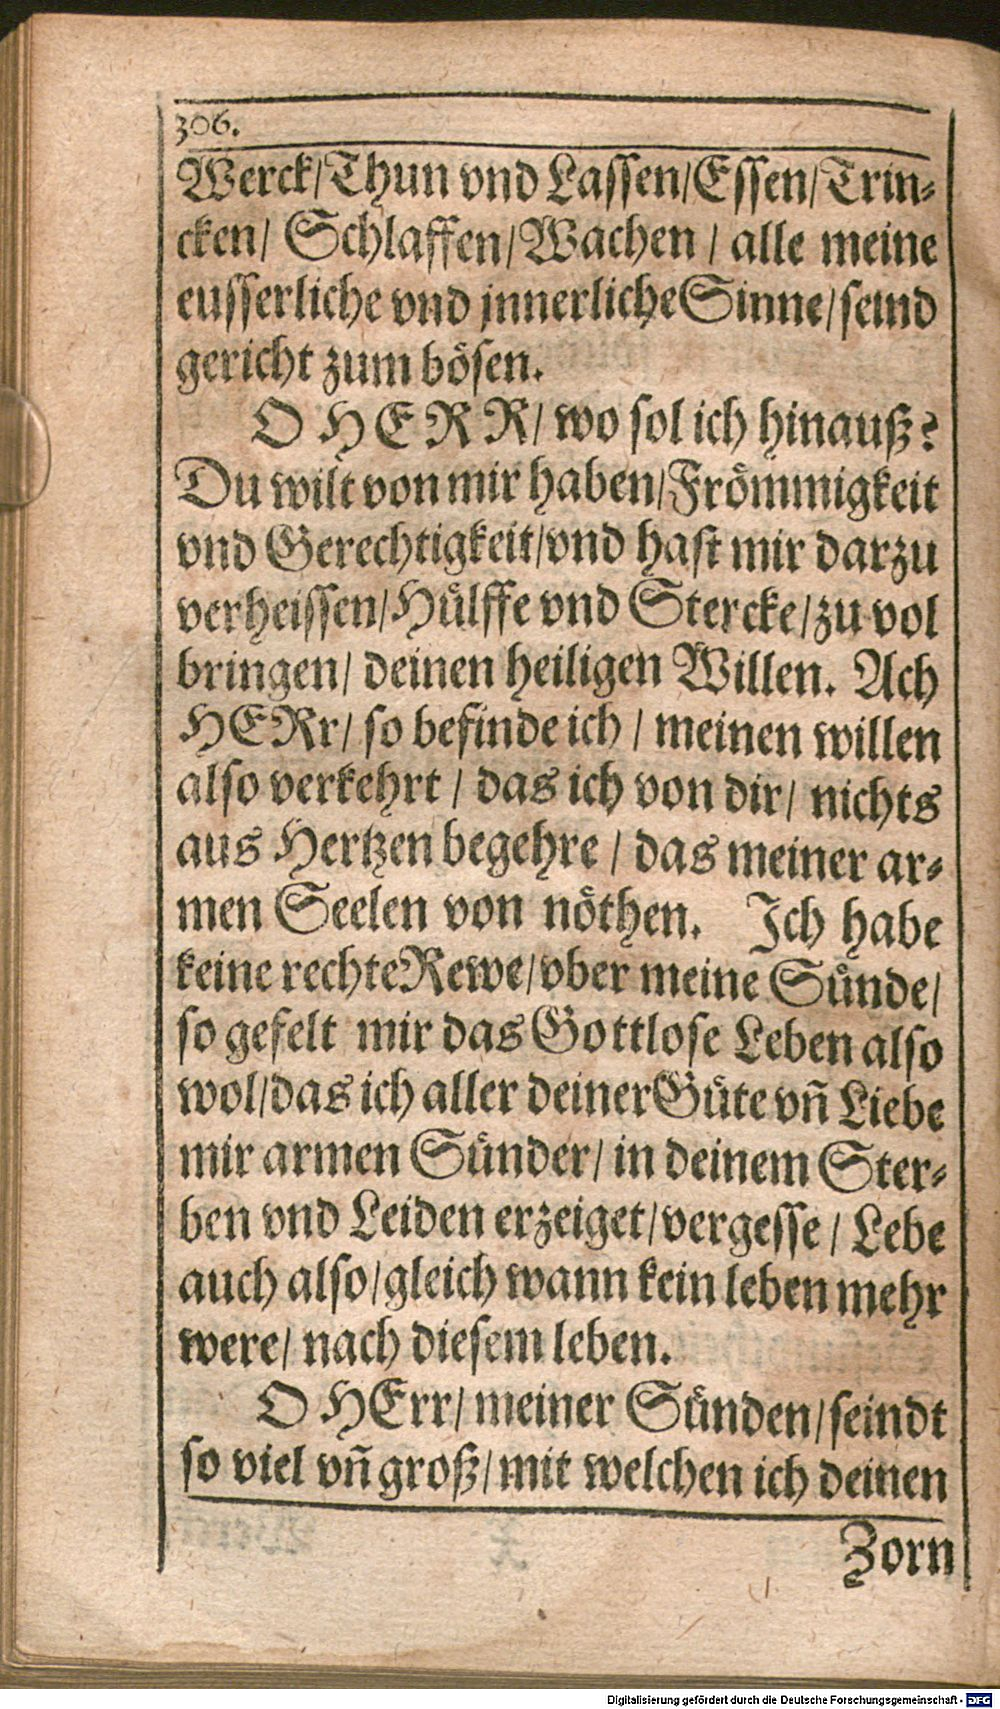 306.
Werck/Thun vnd Lassen/Essen/Trin-
cken/ Schlaffen/Wachen / alle meine
eusserliche vnd jnnerliche Sinne/seind
gericht zum bösen.
O HERR/ wo sol ich hinauß?
Du wilt von mir haben/Frömmigkeit
vnd Gerechtigkeit/vnd hast mir darzu
verheissen/Hülffe vnd Stercke/zu vol
bringen/ deinen heiligen Willen. Ach
HERr/ so befinde ich / meinen willen
also verkehrt / das ich von dir/ nichts
aus Hertzen begehre / das meiner ar-
men Seelen von nöthen. Ich habe
keine rechte Rewe/vber meine Sünde/
so gefelt mir das Gottlose Leben also
wol/das ich aller deiner Güte vñ Liebe
mir armen Sünder/ in deinem Ster-
ben vnd Leiden erzeiget/vergesse / Lebe
auch also/gleich wann kein leben mehr
were/ nach diesem leben.
O HErr/ meiner Sünden/seindt
so viel vñ groß/mit welchen ich deinen
Zorn
Digitalisierung gefördert durch die Deutsche Forschungsgemeinschaft - DFG